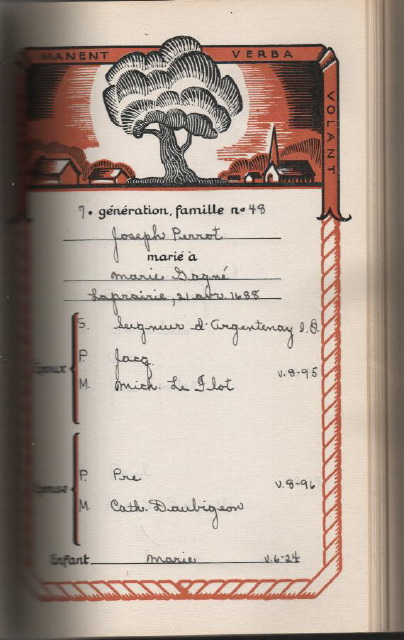 MANENT VERBA
VOLANT
7. génération, famille n• 48
Joseph Perrot
marié à
Marie Gagné
Laprairie, 21 avr. 1688
S. Seigneur d'Argentenay I.O.
P. Jacq.
Epoux M. Mich. Le Flot v.8-95
P. Pre
Epouse v.8-96
M. Cath. Daubigeon
Enfant Marie v.6-24